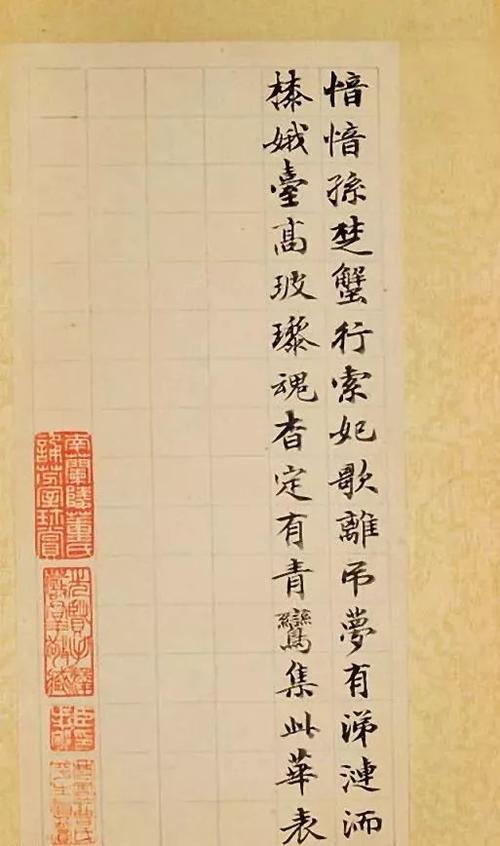 愔愔孫楚蟹行索妃歌離吊夢有涕漣洏
榛娥臺高玻瓈魂杳定有青鸞集此華表
南蘭陵董氏
誦芬室珎賞